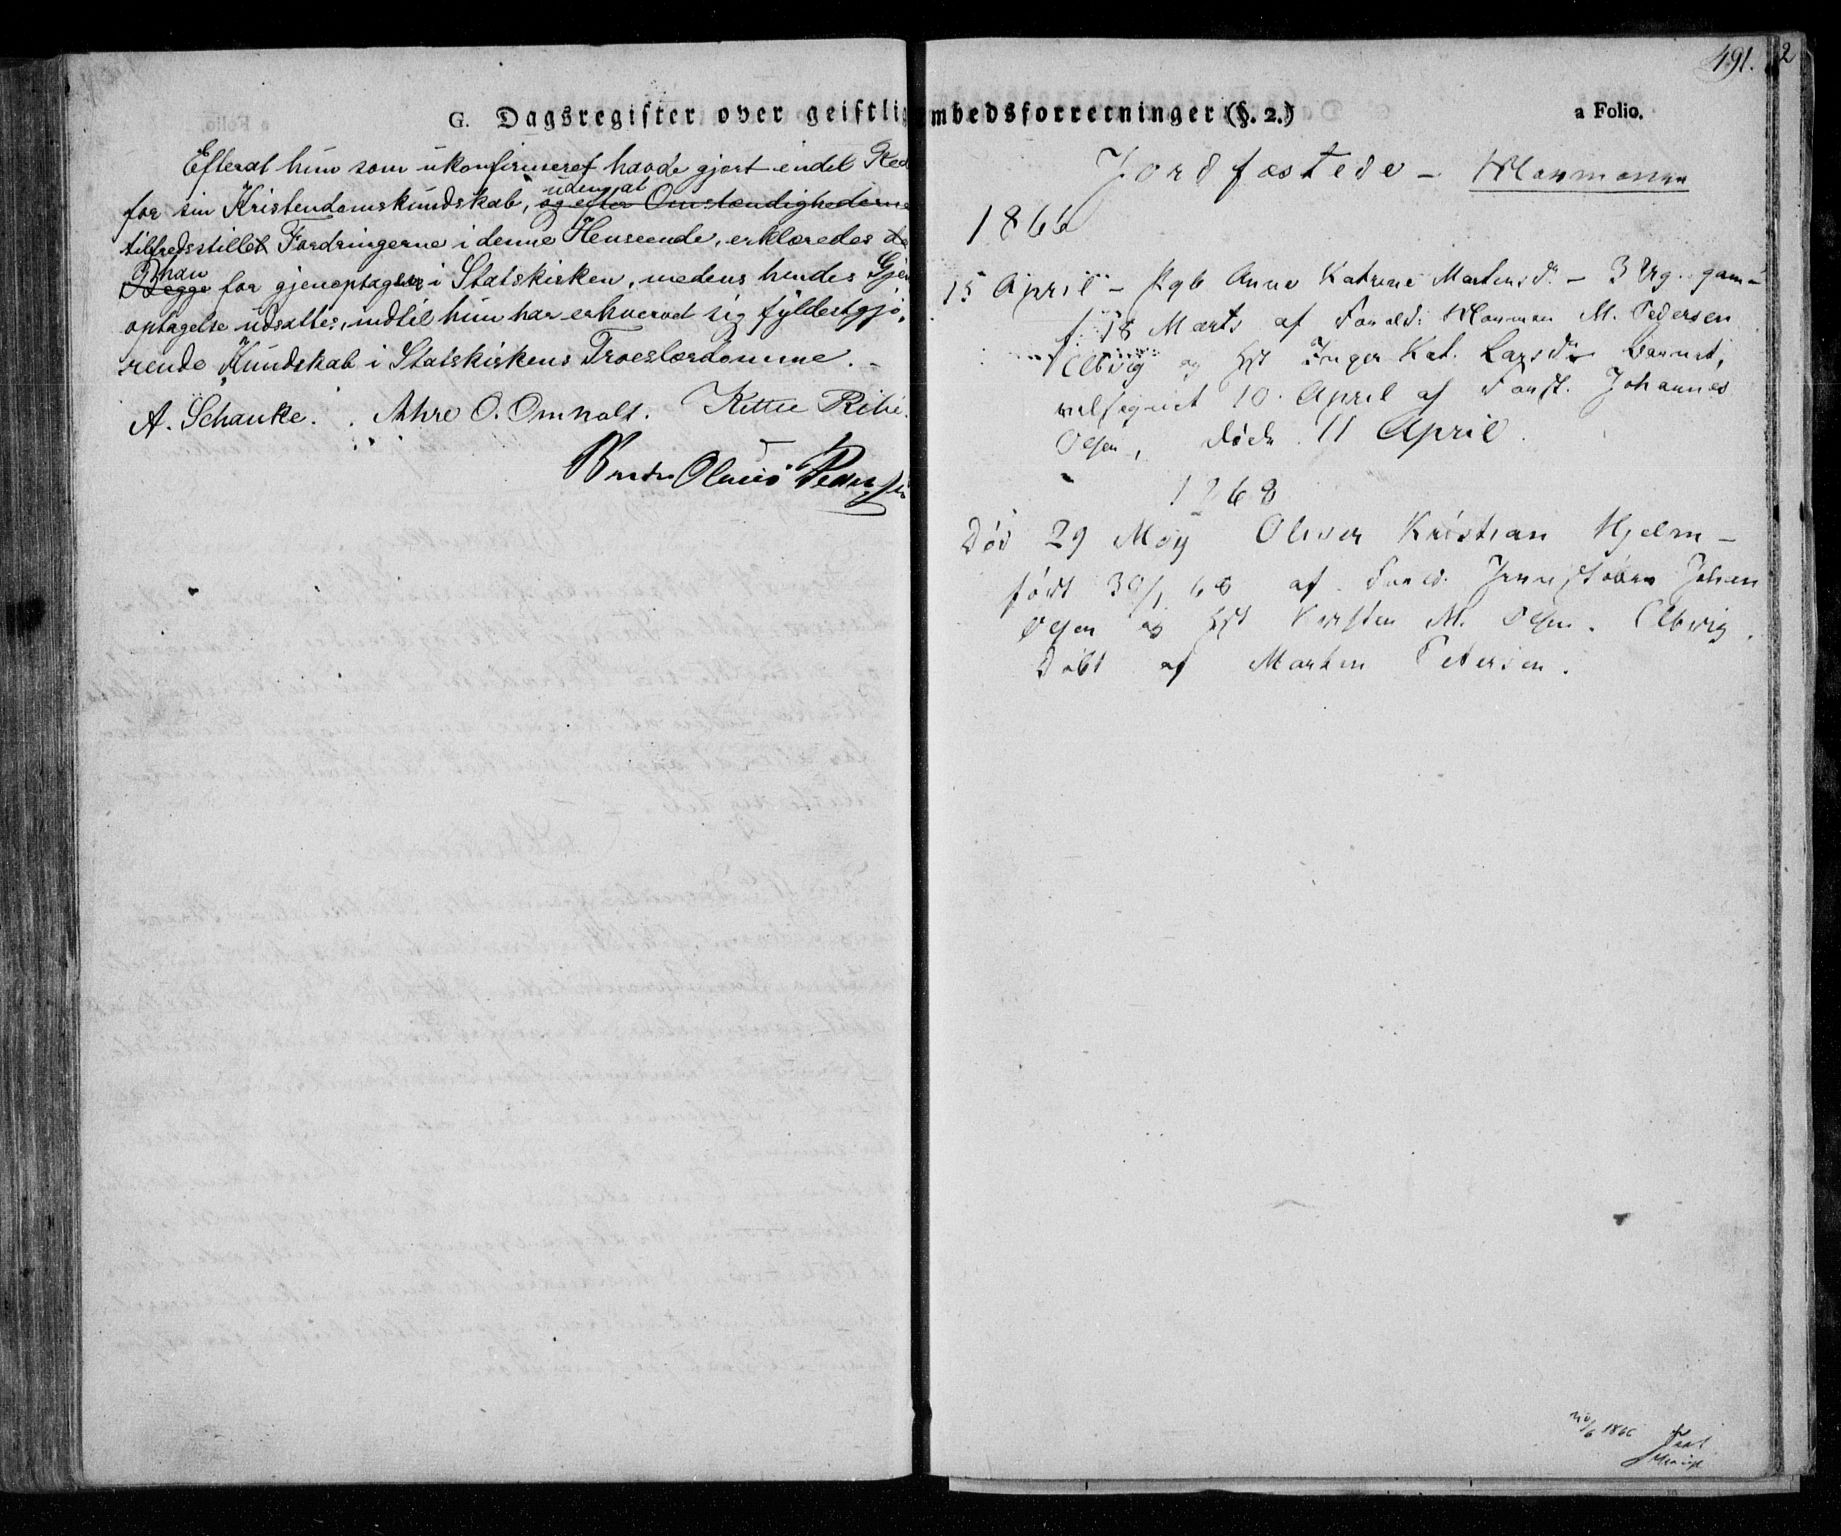 G. Dagsregister over geistlig
Efterat hun som ukonfirmeret havde gjort endel Red
for sin Kristendomskundskab, og efter Omstændighederne
uden at
tilfredsstillet Fordringerne i denne Henseende, erklæredes de
Begge for gjenoptagen i Statskirken, medens hendes Gjen
han
optagelse udsattes, indtil hun har erhvervet sig fyldestgjø-
rende Kundskab i Statskirkens Troeslærdomme. -
A. Schanke. Athre O. Omholt. Kittil
Olaus Peders
491.
2
mbedsforretninger (§. 2.)
a Folio.
Jordfæstede - Mormoner
1866
15 April - Pgb Anne Katrine Martinsdr - 3 Ug. gam-
f. 18 Marts af Forældr: Mormon M. Pedersen
Elbvig og Hst Inger Kat. Larsdr Barnet,
velsignet 10 April af Forst. Johannes
Olsen, døde 11 April.
1868
Død 29 May Oliver Kristian Hjelm -
født 30/1 68 af Foræld. Jernstøber Johan
Olsen og Hst Kirsten M. Olsen. Elbvig.
Døbt af Marten Petersen.
/6 1866